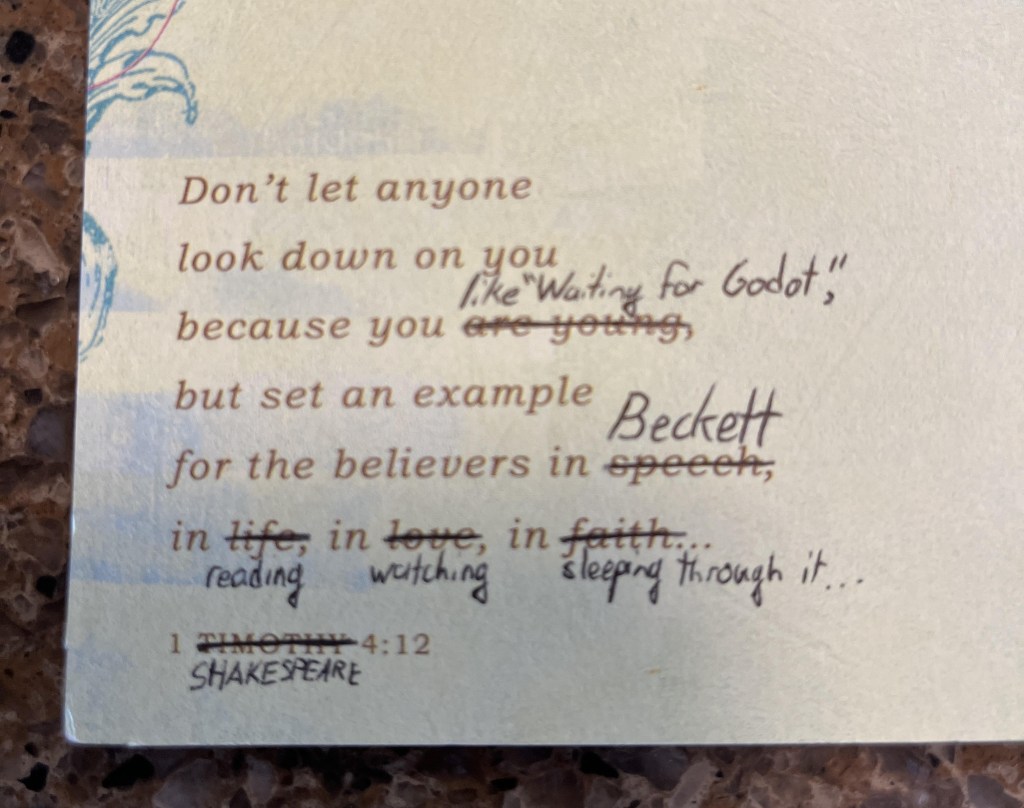 Don't let anyone
look down on you
like "Waiting for Godot,"
because you are young,
but set an example
Beckett
for the believers in speech,
in life, in love, in faith...
reading watching sleeping through it...
1 TIMOTHY 4:12
SHAKESPEARE